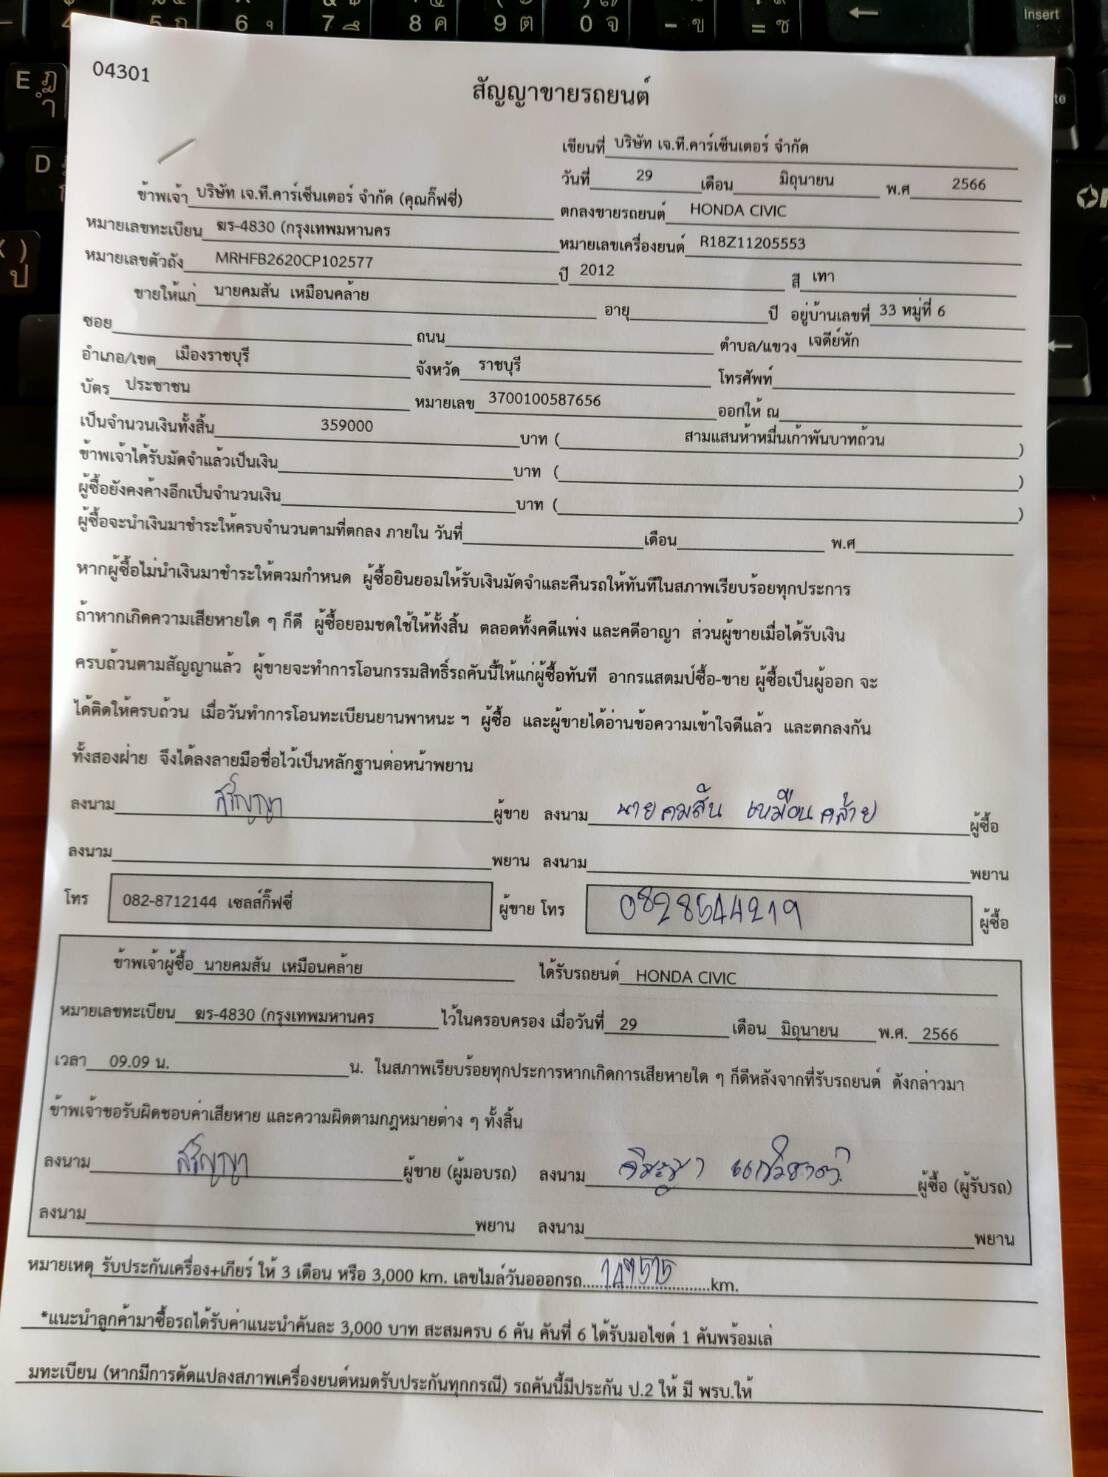 04301
สัญญาขายรถยนต์
เขียนที่ บริษัท เจ.ที.คาร์เซ็นเตอร์ จำกัด
วันที่ 29 เดือน มิถุนายน พ.ศ 2566
ข้าพเจ้า บริษัท เจ.ที.คาร์เซ็นเตอร์ จำกัด (คุณกิ๊ฟซี่) ตกลงขายรถยนต์ HONDA CIVIC
หมายเลขทะเบียน ฆร-4830 (กรุงเทพมหานคร หมายเลขเครื่องยนต์ R18Z11205553
หมายเลขตัวถัง MRHFB2620CP102577 ปี 2012 สี เทา
ขายให้แก่ นายคมสัน เหมือนคล้าย อายุ ปี อยู่บ้านเลขที่ 33 หมู่ที่ 6
ซอย ถนน ตำบล/แขวง เจดีย์หัก
อำเภอ/เขต เมืองราชบุรี จังหวัด ราชบุรี โทรศัพท์
บัตร ประชาชน หมายเลข 3700100587656 ออกให้ ณ
เป็นจำนวนเงินทั้งสิ้น 359000 บาท ( สามแสนห้าหมื่นเก้าพันบาทถ้วน )
ข้าพเจ้าได้รับมัดจำแล้วเป็นเงิน บาท ( )
ผู้ซื้อยังคงค้างอีกเป็นจำนวนเงิน บาท ( )
ผู้ซื้อจะนำเงินมาชำระให้ครบจำนวนตามที่ตกลง ภายใน วันที่ เดือน พ.ศ
หากผู้ซื้อไม่นำเงินมาชำระให้ตวมกำหนด ผู้ซื้อยินยอมให้รับเงินมัดจำและคืนรถให้ทันทีในสภาพเรียบร้อยทุกประการ
ถ้าหากเกิดความเสียหายใด ๆ ก็ดี ผู้ซื้อยอมชดใช้ให้ทั้งสิ้น ตลอดทั้งคดีแพ่ง และคดีอาญา ส่วนผู้ขายเมื่อได้รับเงิน
ครบถ้วนตามสัญญาแล้ว ผู้ขายจะทำการโอนกรรมสิทธิ์รถคันนี้ให้แก่ผู้ซื้อทันที อากรแสตมป์ซื้อ-ขาย ผู้ซื้อเป็นผู้ออก จะ
ได้ติดให้ครบถ้วน เมื่อวันทำการโอนทะเบียนยานพาหนะ ฯ ผู้ซื้อ และผู้ขายได้อ่านข้อความเข้าใจดีแล้ว และตกลงกัน
ทั้งสองฝ่าย จึงได้ลงลายมือชื่อไว้เป็นหลักฐานต่อหน้าพยาน
ลงนาม สรัญญา ผู้ขาย ลงนาม นายคมสัน เหมือนคล้าย ผู้ซื้อ
ลงนาม พยาน ลงนาม พยาน
โทร 082-8712144 เซลส์กิ๊ฟซี่ ผู้ขาย โทร 0828544219 ผู้ซื้อ
ข้าพเจ้าผู้ซื้อ นายคมสัน เหมือนคล้าย ได้รับรถยนต์ HONDA CIVIC
หมายเลขทะเบียน ฆร-4830 (กรุงเทพมหานคร ไว้ในครอบครอง เมื่อวันที่ 29 เดือน มิถุนายน พ.ศ. 2566
เวลา 09.09 น. น. ในสภาพเรียบร้อยทุกประการหากเกิดการเสียหายใด ๆ ก็ดีหลังจากที่รับรถยนต์ ดังกล่าวมา
ข้าพเจ้าขอรับผิดชอบค่าเสียหาย และความผิดตามกฎหมายต่าง ๆ ทั้งสิ้น
ลงนาม สรัญญา ผู้ขาย (ผู้มอบรถ) ลงนาม ผู้ซื้อ (ผู้รับรถ)
ลงนาม พยาน ลงนาม พยาน
หมายเหตุ รับประกันเครื่อง+เกียร์ ให้ 3 เดือน หรือ 3,000 km. เลขไมล์วันอออกรถ.....................km.
*แนะนำลูกค้ามาซื้อรถได้รับค่าแนะนำคันละ 3,000 บาท สะสมครบ 6 คัน คันที่ 6 ได้รับมอไซด์ 1 คันพร้อมเล่
มทะเบียน (หากมีการดัดแปลงสภาพเครื่องยนต์หมดรับประกันทุกกรณี) รถคันนี้มีประกัน ป.2 ให้ มี พรบ.ให้